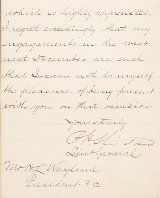 which so highly appreciated,
I regret exceedingly that my
engagements in the west
next December are such
that I can not do myself
the pleasure of being present
with you on that occasion
Yours truly
Lieut General
Mr H L Wayland
President &c